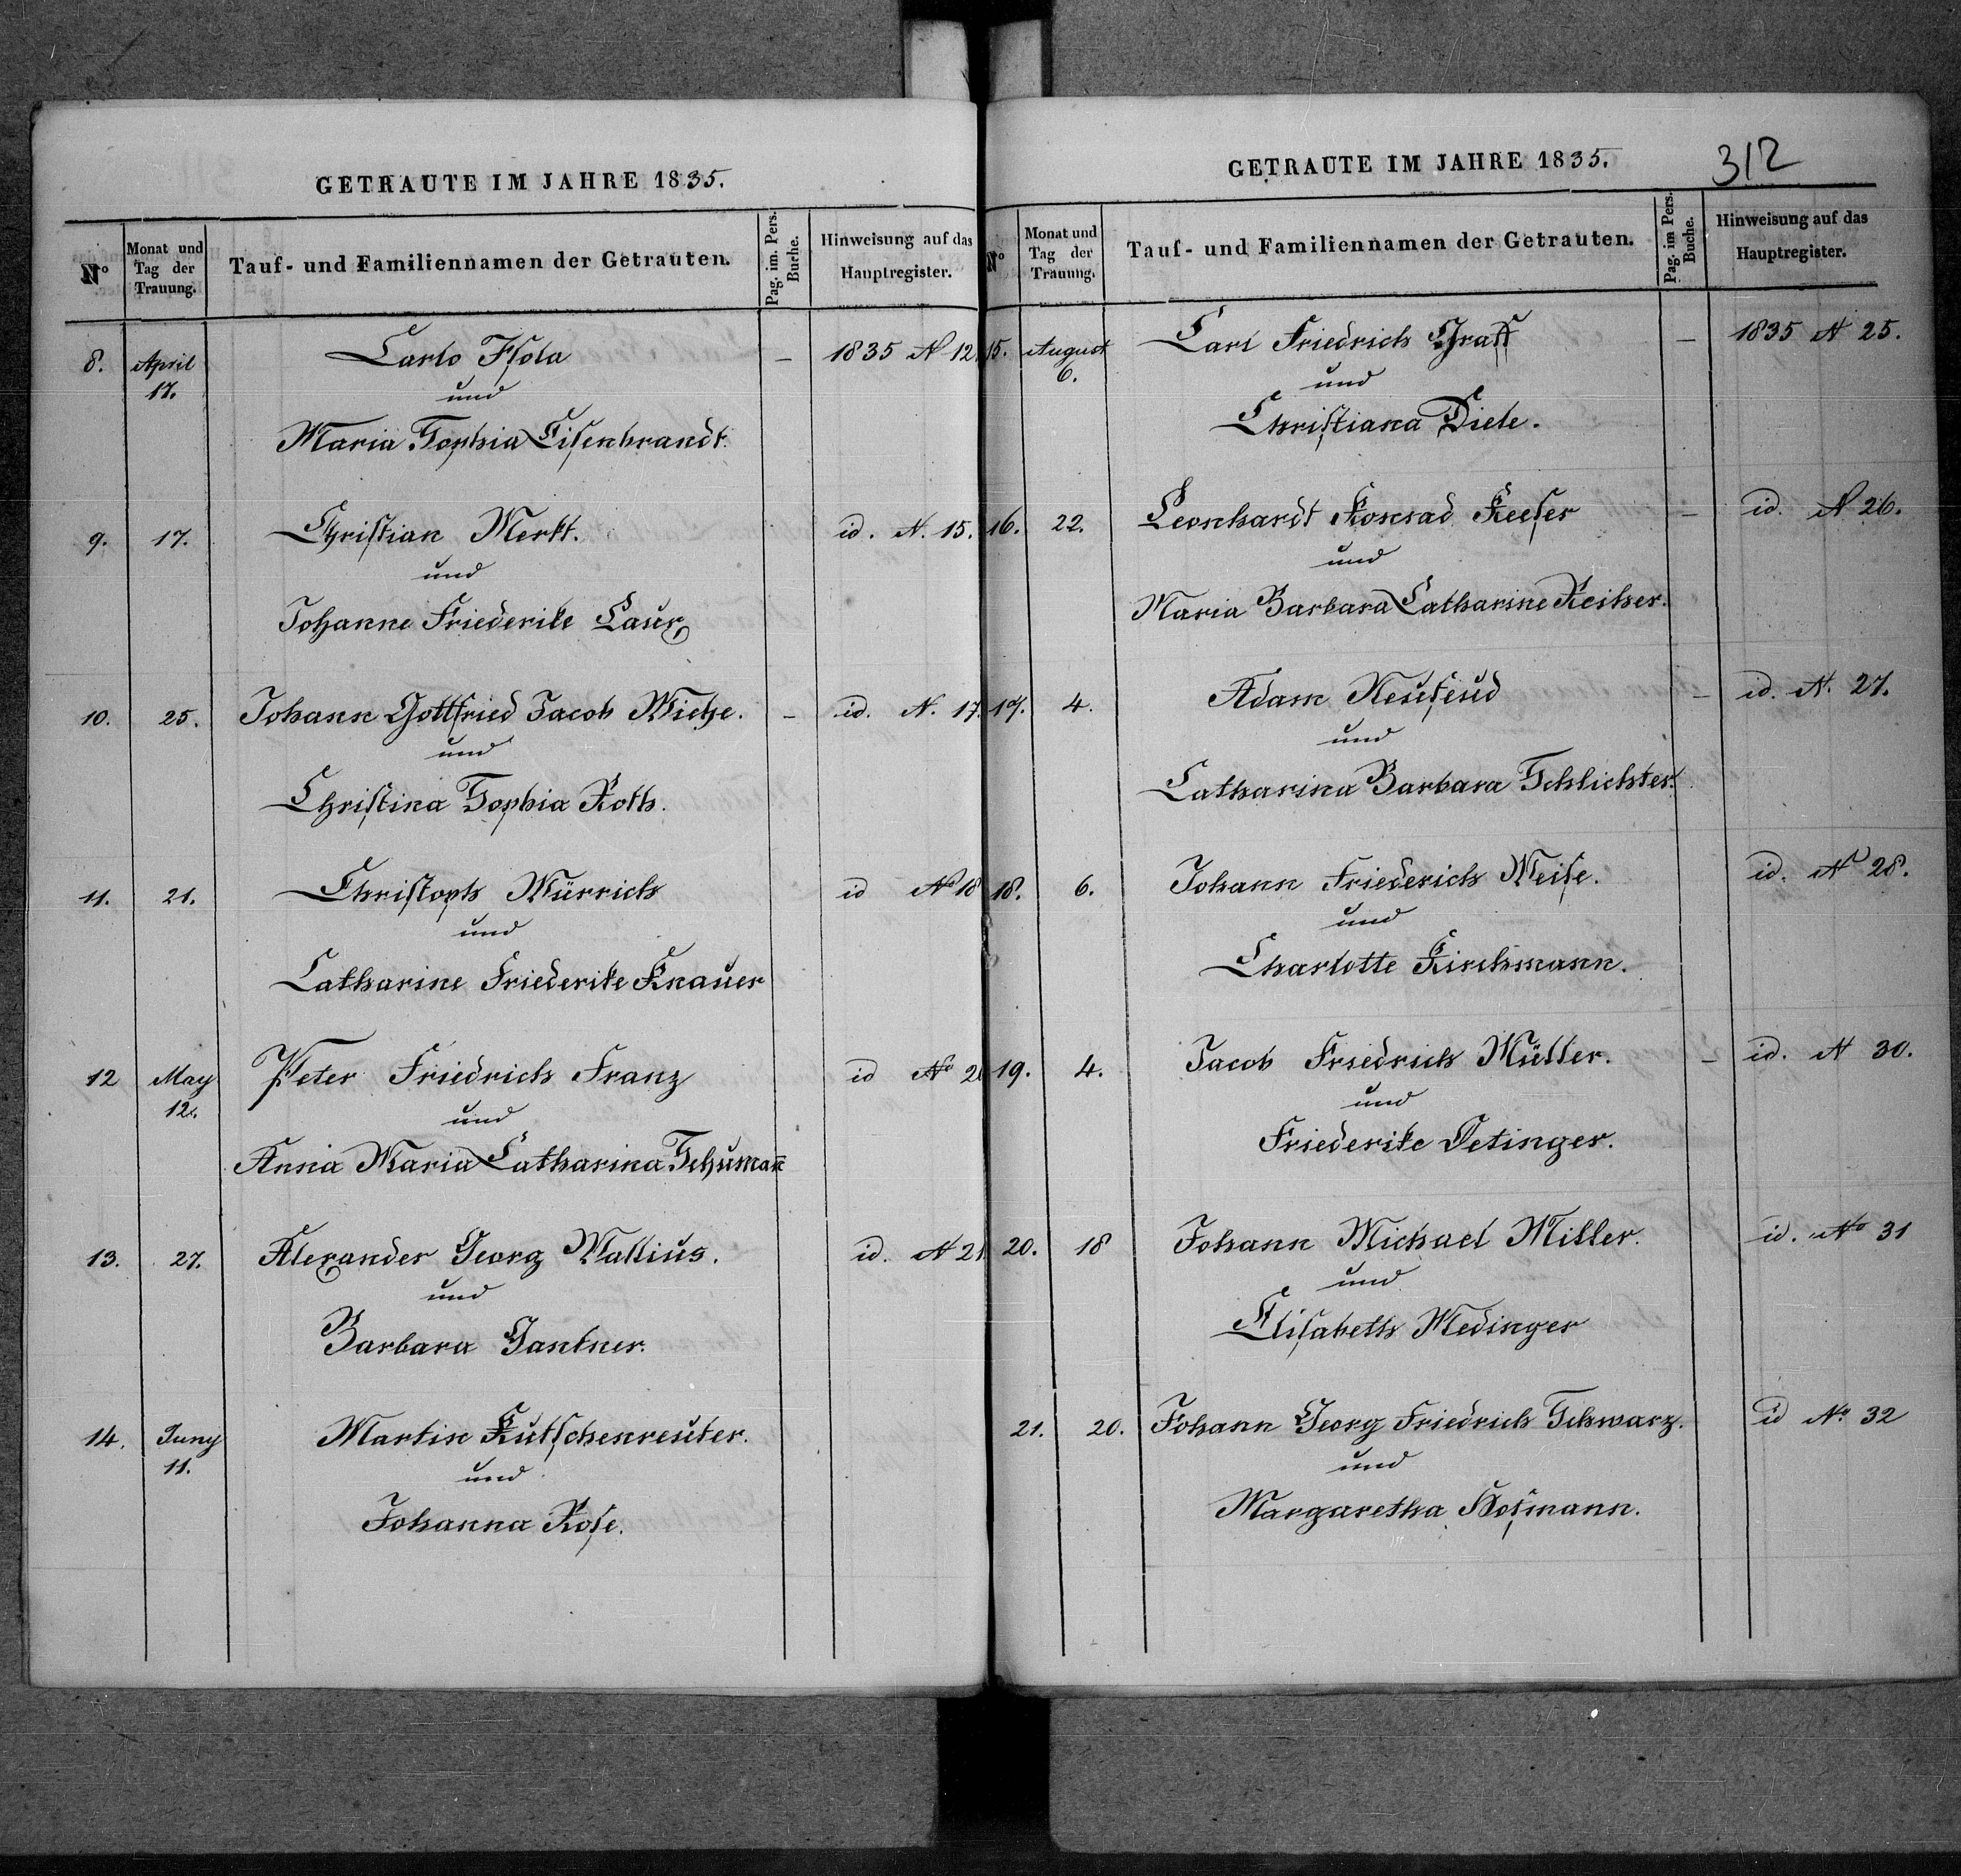 GETRAUTE IM JAHRE 1835.
No
Monat und Tag der Trauung.
Tauf- und Familiennamen der Getrauten.
Pag. im. Pers. Buche.
Hinweisung auf das Hauptregister.
8. April 17. Carlo Isola — 1835 N 12.
und
Maria Sophia Eisenbrandt.
9. 17. Christian Merkt. id. N. 15.
und
Johanne Friederike Laux
10. 25. Johann Gottfried Jacob Wiche. — id. N. 17.
und
Christina Sophia Roth.
11. 21. Christoph Würrich id No 18
und
Catharine Friederike Knauer
12 May 12. Peter Friedrich Franz id No
und
Anna Maria Catharina Schuman̅
13. 27. Alexander Georg Wallius. id. N 21.
und
Barbara Gantner.
14. Juny 11. Martin Kutschenreuter.
und
Johanna Rose.
GETRAUTE IM JAHRE 1835.
312
No
Monat und Tag der Trauung.
Tauf- und Familiennamen der Getrauten.
Pag. im Pers. Buche.
Hinweisung auf das Hauptregister.
15. August 6. Carl Friedrich Graff — 1835 N 25.
und
Christiana Diete.
16. 22. Leonhardt Konrad Keefer — id. N 26.
und
Maria Barbara Catharine Reicher.
17. 4. Adam — id. N. 27.
und
Catharina Barbara Schlichter.
18. 6. Johann Friederich Weise. id. N 28.
und
Charlotte Kirchmann.
19. 4. Jacob Friedrich Müller. — id. N 30.
und
Friederike Oetinger.
20. 18 Johann Michael Miller. id. No 31
und
Elisabeth Medinger
21. 20. Johann Georg Friedrich Schwarz. id No 32
und
Margaretha Hofmann.